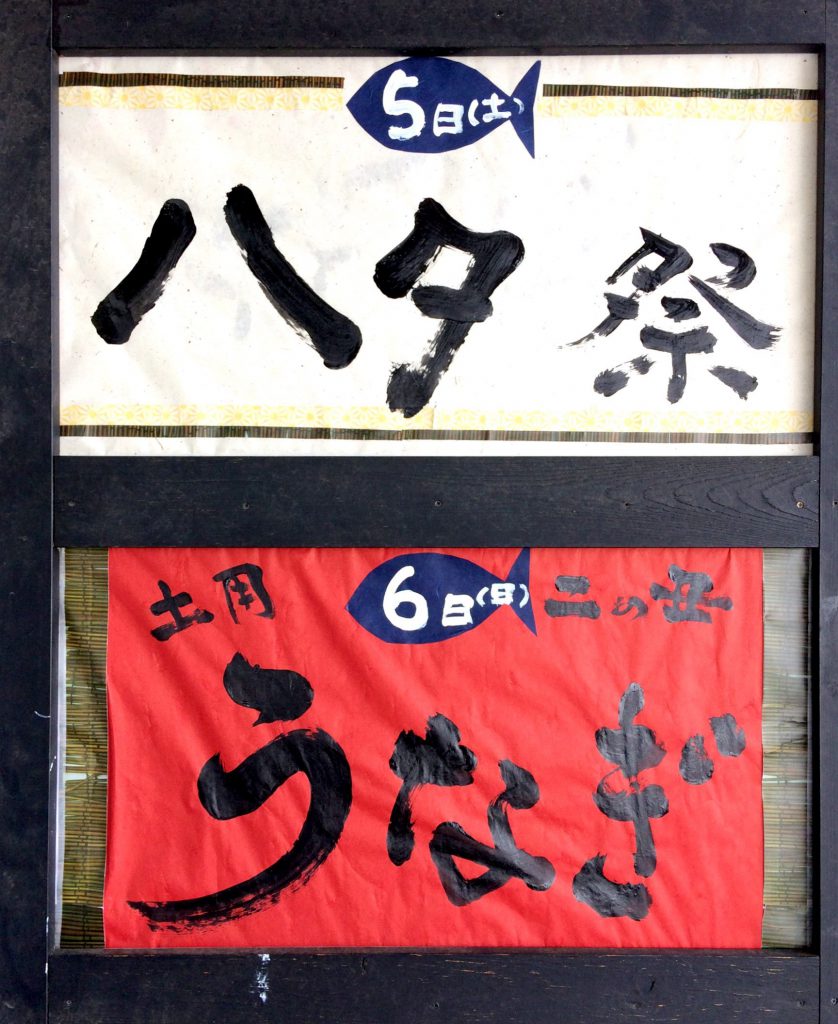 5日(土)
ハタ祭
土用 6日(日) 二の丑
うなぎ